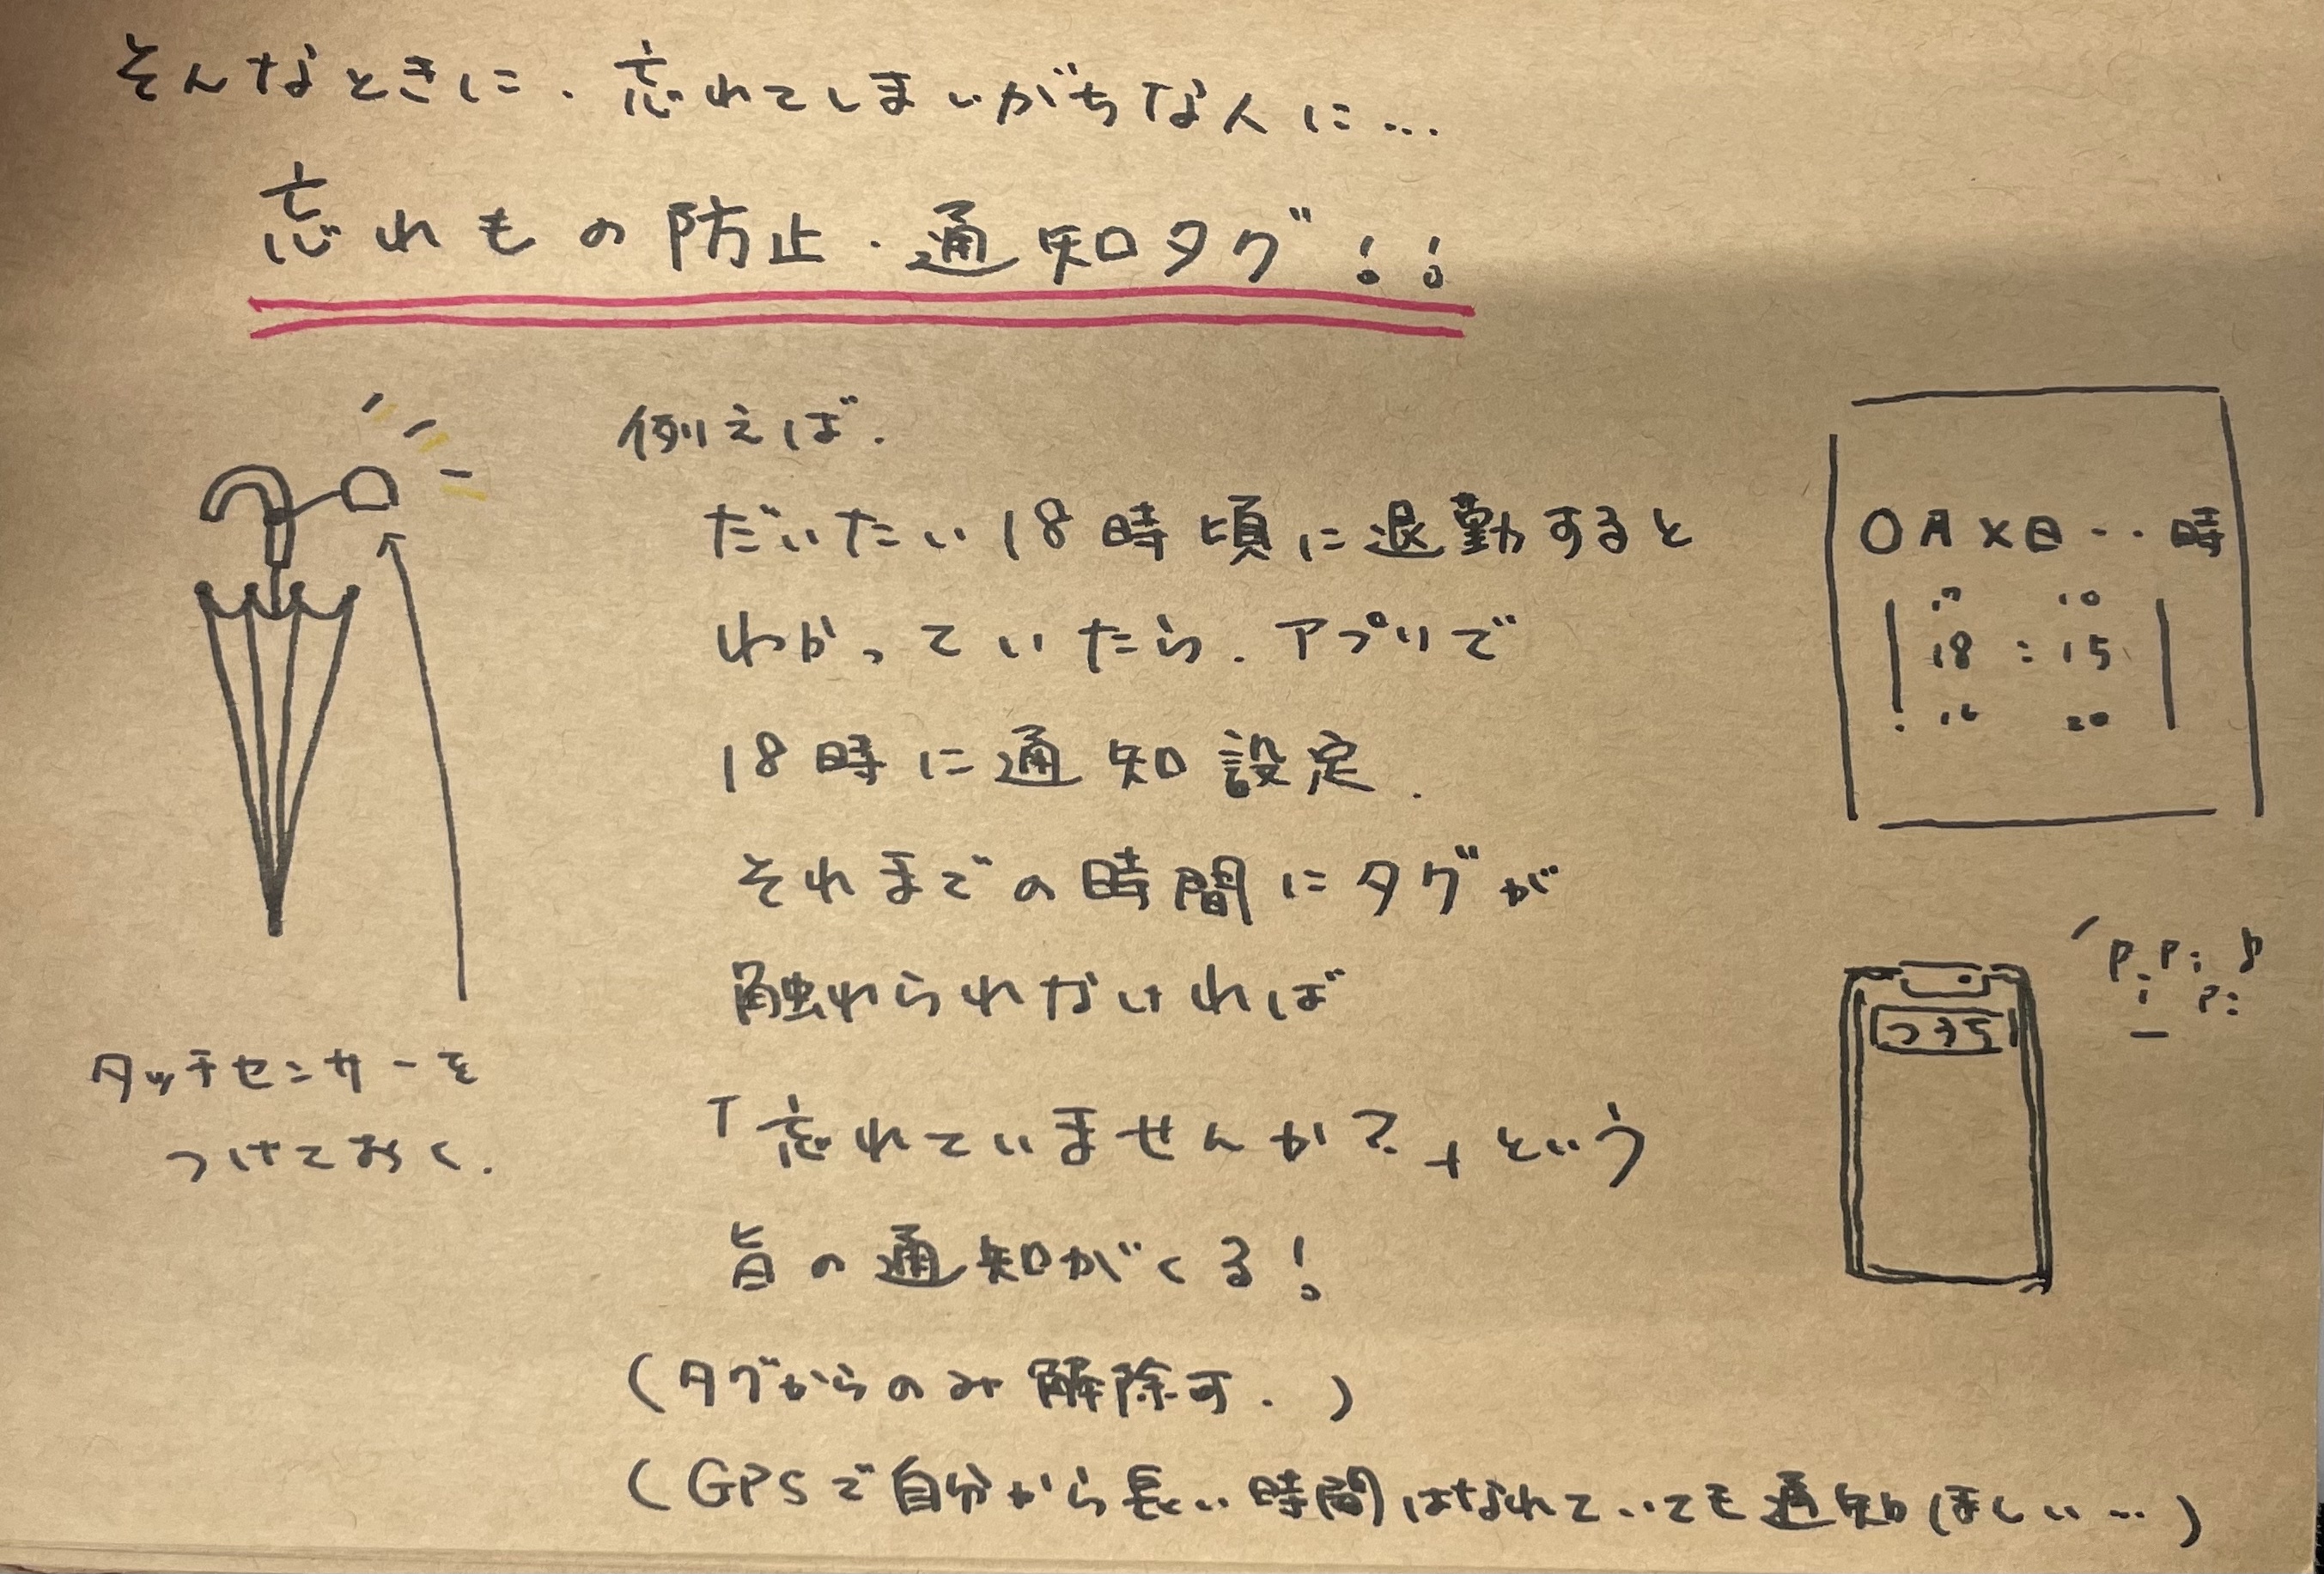 そんなときに、忘れてしまいがちな人に…
忘れもの防止・通知タグ!!
例えば、
だいたい18時頃に退勤すると
わかっていたら、アプリで
18時に通知設定、
それまでの時間にタグが
触れられなければ
「忘れていませんか?」という
旨の通知がくる!
(タグからのみ解除可。)
(GPSで自分から長い時間はなれていても通知ほしい…)
タッチセンサーを
つけておく。
○月×日‥時
17 10
18:15
20